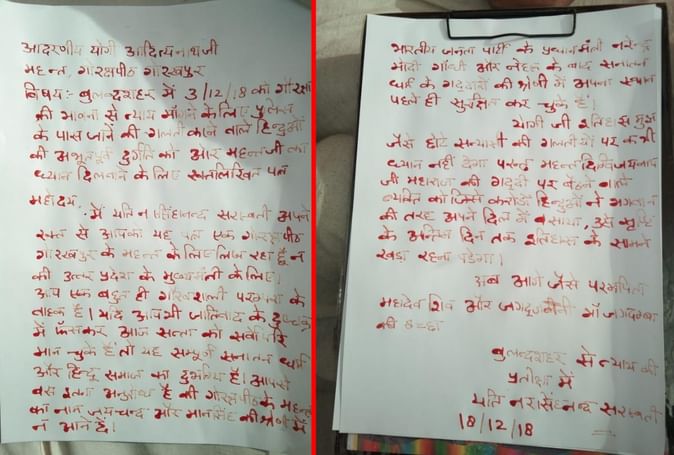 आदरणीय योगी आदित्यनाथ जी
महन्त, गोरक्षपीठ गोरखपुर
विषय:- बुलन्दशहर में 3/12/18 को गौरक्षा
की भावना से न्याय माँगने के लिए पुलिस
के पास जाने की गलती करने वाले हिन्दुओं
की अभूतपूर्व दुर्गति को और महन्तजी का
ध्यान दिलवाने के लिए स्वलिखित पत्र
महोदय,
में यति नरसिंहानन्द सरस्वती अपने
रक्त से आपको यह पत्र एक गोरक्षपीठ
गोरखपुर के महन्त के लिए लिख रहा हूँ न
की उत्तर प्रदेश के मुख्यमंत्री के लिए।
आप एक बहुत ही गौरवशाली परम्परा के
वाहक है। यदि आप भी जातिवाद के
में फँसकर आज सत्ता को सर्वोपरि
मान चुके हैं तो यह सम्पूर्ण सनातन धर्म
और हिन्दू समाज का दुर्भाग्य है। आपसे
बस इतना अनुरोध है की गोरक्षपीठ के महन्त
का नाम जयचन्द और मानसिंह की श्रेणी में
न आने दें।
भारतीय जनता पार्टी के प्रधानमंत्री नरेन्द्र
मोदी गाँधी और नेहरू के बाद सनातन
धर्म के गद्दारों की श्रेणी में अपना स्थान
पहले ही सुरक्षित कर चुके हैं।
योगी जी इतिहास मुझ
जैसे छोटे सन्यासी की गलतीयों पर कभी
ध्यान नहीं देगा परन्तु महन्त दिग्विजयनाथ
जी महाराज की गद्दी पर बैठने वाले
व्यक्ति को जिसे करोडो हिन्दुओं ने भगवान
की तरह अपने दिल में बसाया, उसे सृष्टि
के अन्तिम दिन तक इतिहास के सामने
खड़ा रहना पड़ेगा।
अब आगे जैसे परमपिता
महादेव शिव और जगद्जननी माँ जगदम्बा
की इच्छा
बुलन्दशहर से न्याय की
प्रतीक्षा में
यति नरसिंहानन्द सरस्वती
18/12/18